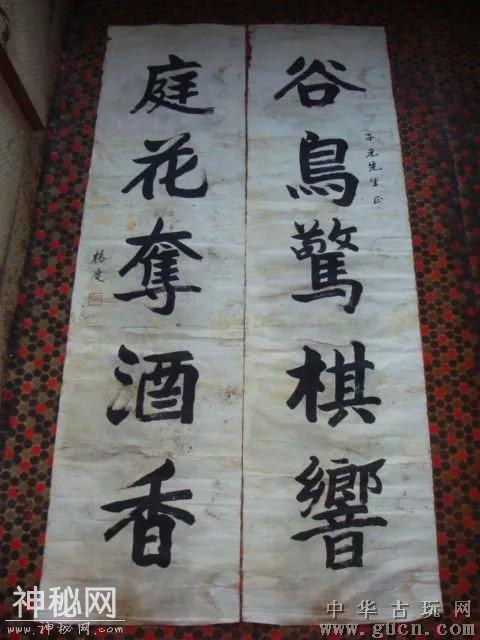 谷鳥驚棋響
子元先生正
庭花奪酒香
楊度
神秘网
www.神秘网.com
中华古玩网
www.gucn.com